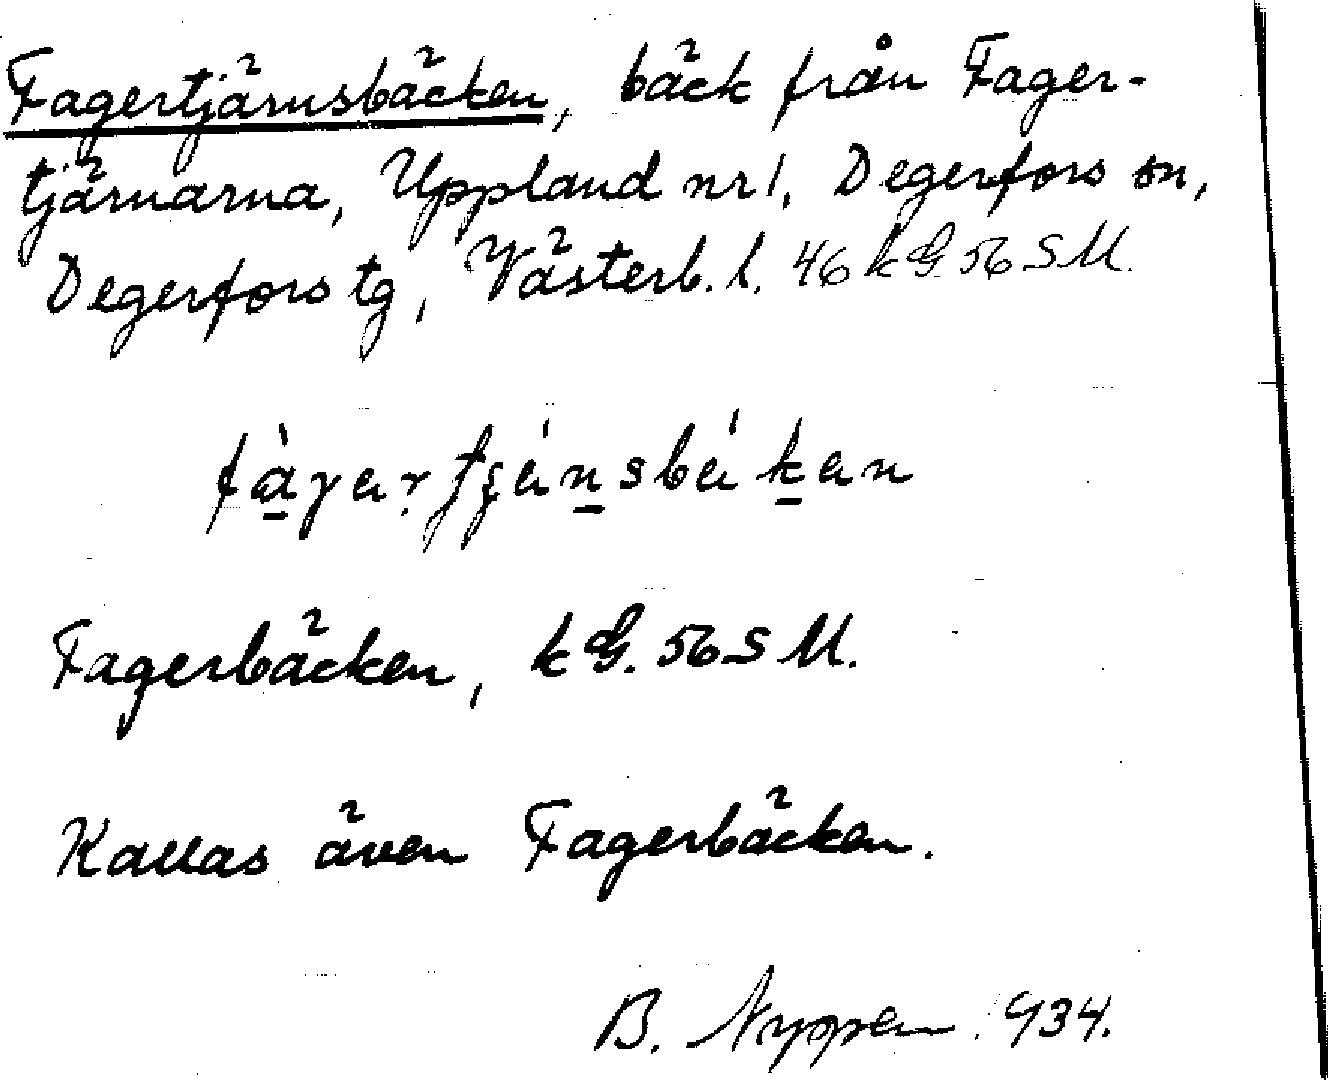 Fagertjärnsbäcken, bäck från Fager-
tjärnarna, Uppland nr 1, Degerfors sn,
Degerfors tg, Västerb. l. 46 k G. 56 S M.
Fagerbäcken, k G. 56 S M.
Kallas även Fagerbäcken.
B. 934.